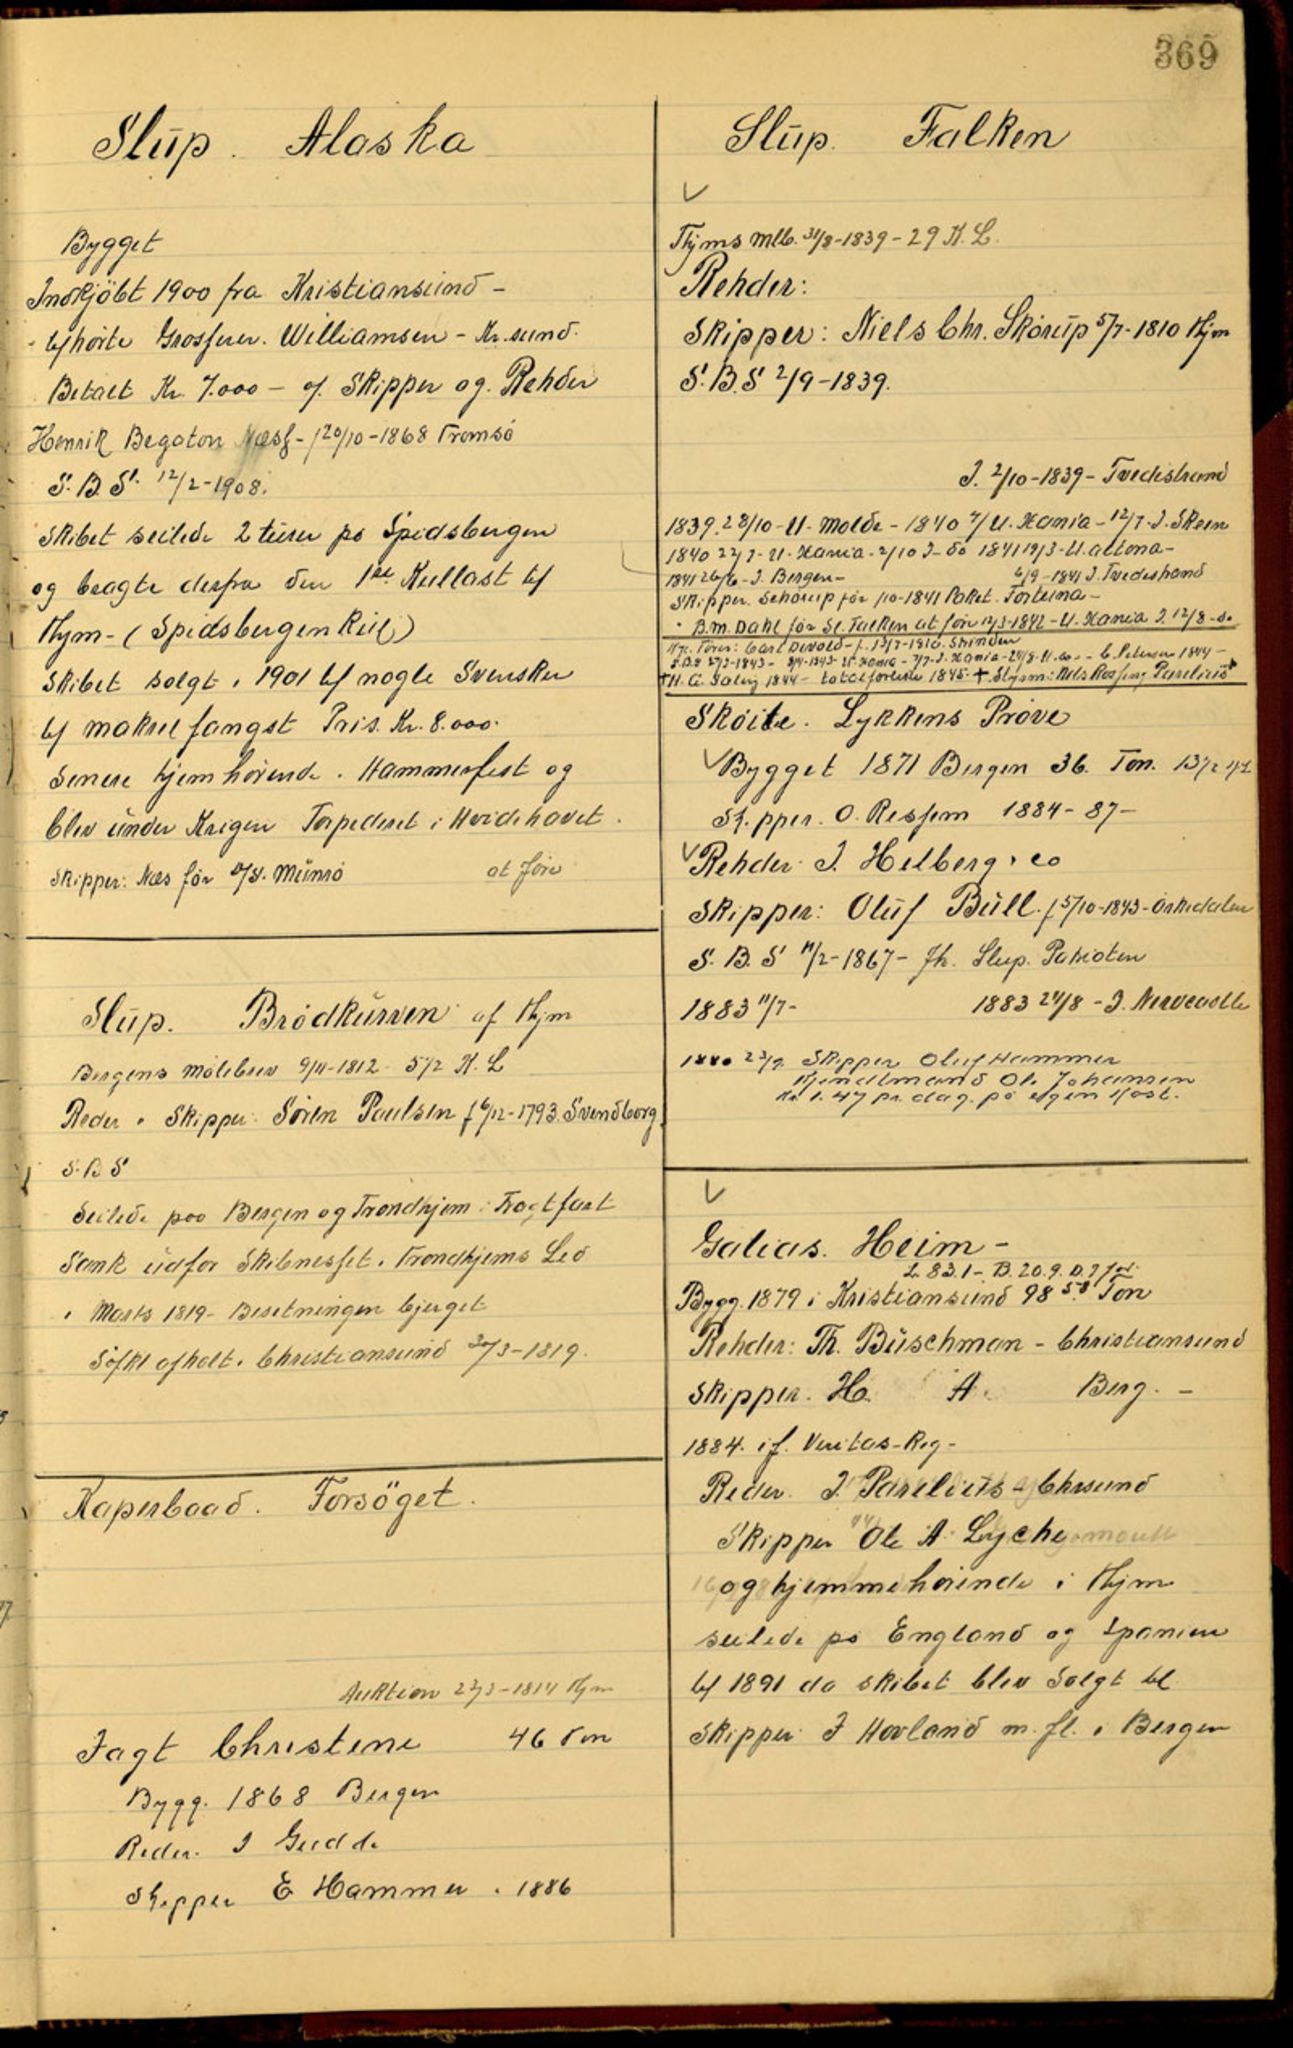 369
Slup. Alaska
Bygget
Indkjöbt 1900 fra Kristiansund -
Grosserer. Williamsen - Kr.sund.
Betalt Kr. 7.000 - af Skipper og Rehder
Henrik Næss - f 20/10 - 1868 Tromsö
S. B. S. 12/2 - 1908.
Skibet seilede 2 turer på Spidsbergen
og bragte derfra den 1ste Kullast til
Thjm - (Spidsbergen Kul)
Skibet solgt i 1901 til nogle Svensker
til makrel fangst Pris. Kr. 8.000.
Senere hjemhörende i Hammerfest og
blev under Krigen Torpederet i Hvidehavet.
Skipper: Næs för D/S. Munro at före
Slup. Brödkurven af Thjm
Bergens målebrev 9/11 - 1812 5 1/2 K. L
Reder & Skipper. Sören Paulsen f 6/12 - 1793. Svendborg
S. B S
Seilede paa Bergen og Trondhjem i Fragtfart
Sank udfor Skibnesset i Trondhjems Led
i Marts 1819 - Besetningen bjerget
Söfkl afholt i Christiansund 30/3 - 1819.
Kaperbaad. Forsöget.
Auktion 23/3 - 1814 Thjm
Jagt Christene 46 Ton
Bygg. 1868 Bergen
Reder. J
Skipper E Hammer. 1886
Slup. Falken
Thjms Mlb. 31/8 - 1839 - 29 K. L.
Rehder:
Skipper: Niels Chr. Skörup 5/7 - 1810 Thjm
S. B. S 2/9 - 1839.
I. 2/10 - 1839 - Tvedestrand
1839. 28/10 - U. Molde - 1840 U. Xania - 12/7. I. Skien
1840 22/7 - U. Xania - 2/10 I - do 1841 19/3 - U. Altona -
1841 26/6 - I. Bergen - 6/9 - 1841 I. Tvedestrand
Skipper. Schörup för /10 - 1841 Paket. Fortuna -
B. M. Dahl för Sl. Falken at före 12/3 - 1842 - U. Xania I. 12/8 - do
Nye. Förer: Carl Devold - f. 13/7 - 1816
S.B.S 27/3 - 1843 - U. Xania - 7/7 - I. Xania - 24/8 - U. do - C. Petersen 1844 -
1844 - totalforliste 1845 + Styrm: Nils Parelius
Sköite. Lykkens Pröve
Bygget 1871 Bergen 36. Ton. 13 1/2
Skipper. O. Ressem 1884 - 87 -
Rehder: J. Helberg & co
Skipper: Oluf Bull. f 5/10 - 1843 - Orkedalen
S. B. S 11/2 - 1867 - fh. Slup. Patrioten
1883 11/7 - 1883 24/8 - I.
1880 23/9. Skipper Oluf Hammer
Kjendtmand Ole Johansen
Kr 1.47 pr. dag. på egen Kost.
Galias. Heim -
L. 83.1 - B. 20.9. D. 9 fot.
Bygg. 1879 i Kristiansund 98 58 Ton
Rehder: Th. Büschman - Christiansund
Skipper. H. A. Berg. -
1884. if. Veritas - Reg -
Reder. J. Parelius - Chrsund
Skipper Ole A Lyche
og hjemmehörende i Thjm
seilede på England og Spanien
til 1891 da skibet blev Solgt til
Skipper J Hovland m. fl. i Bergen